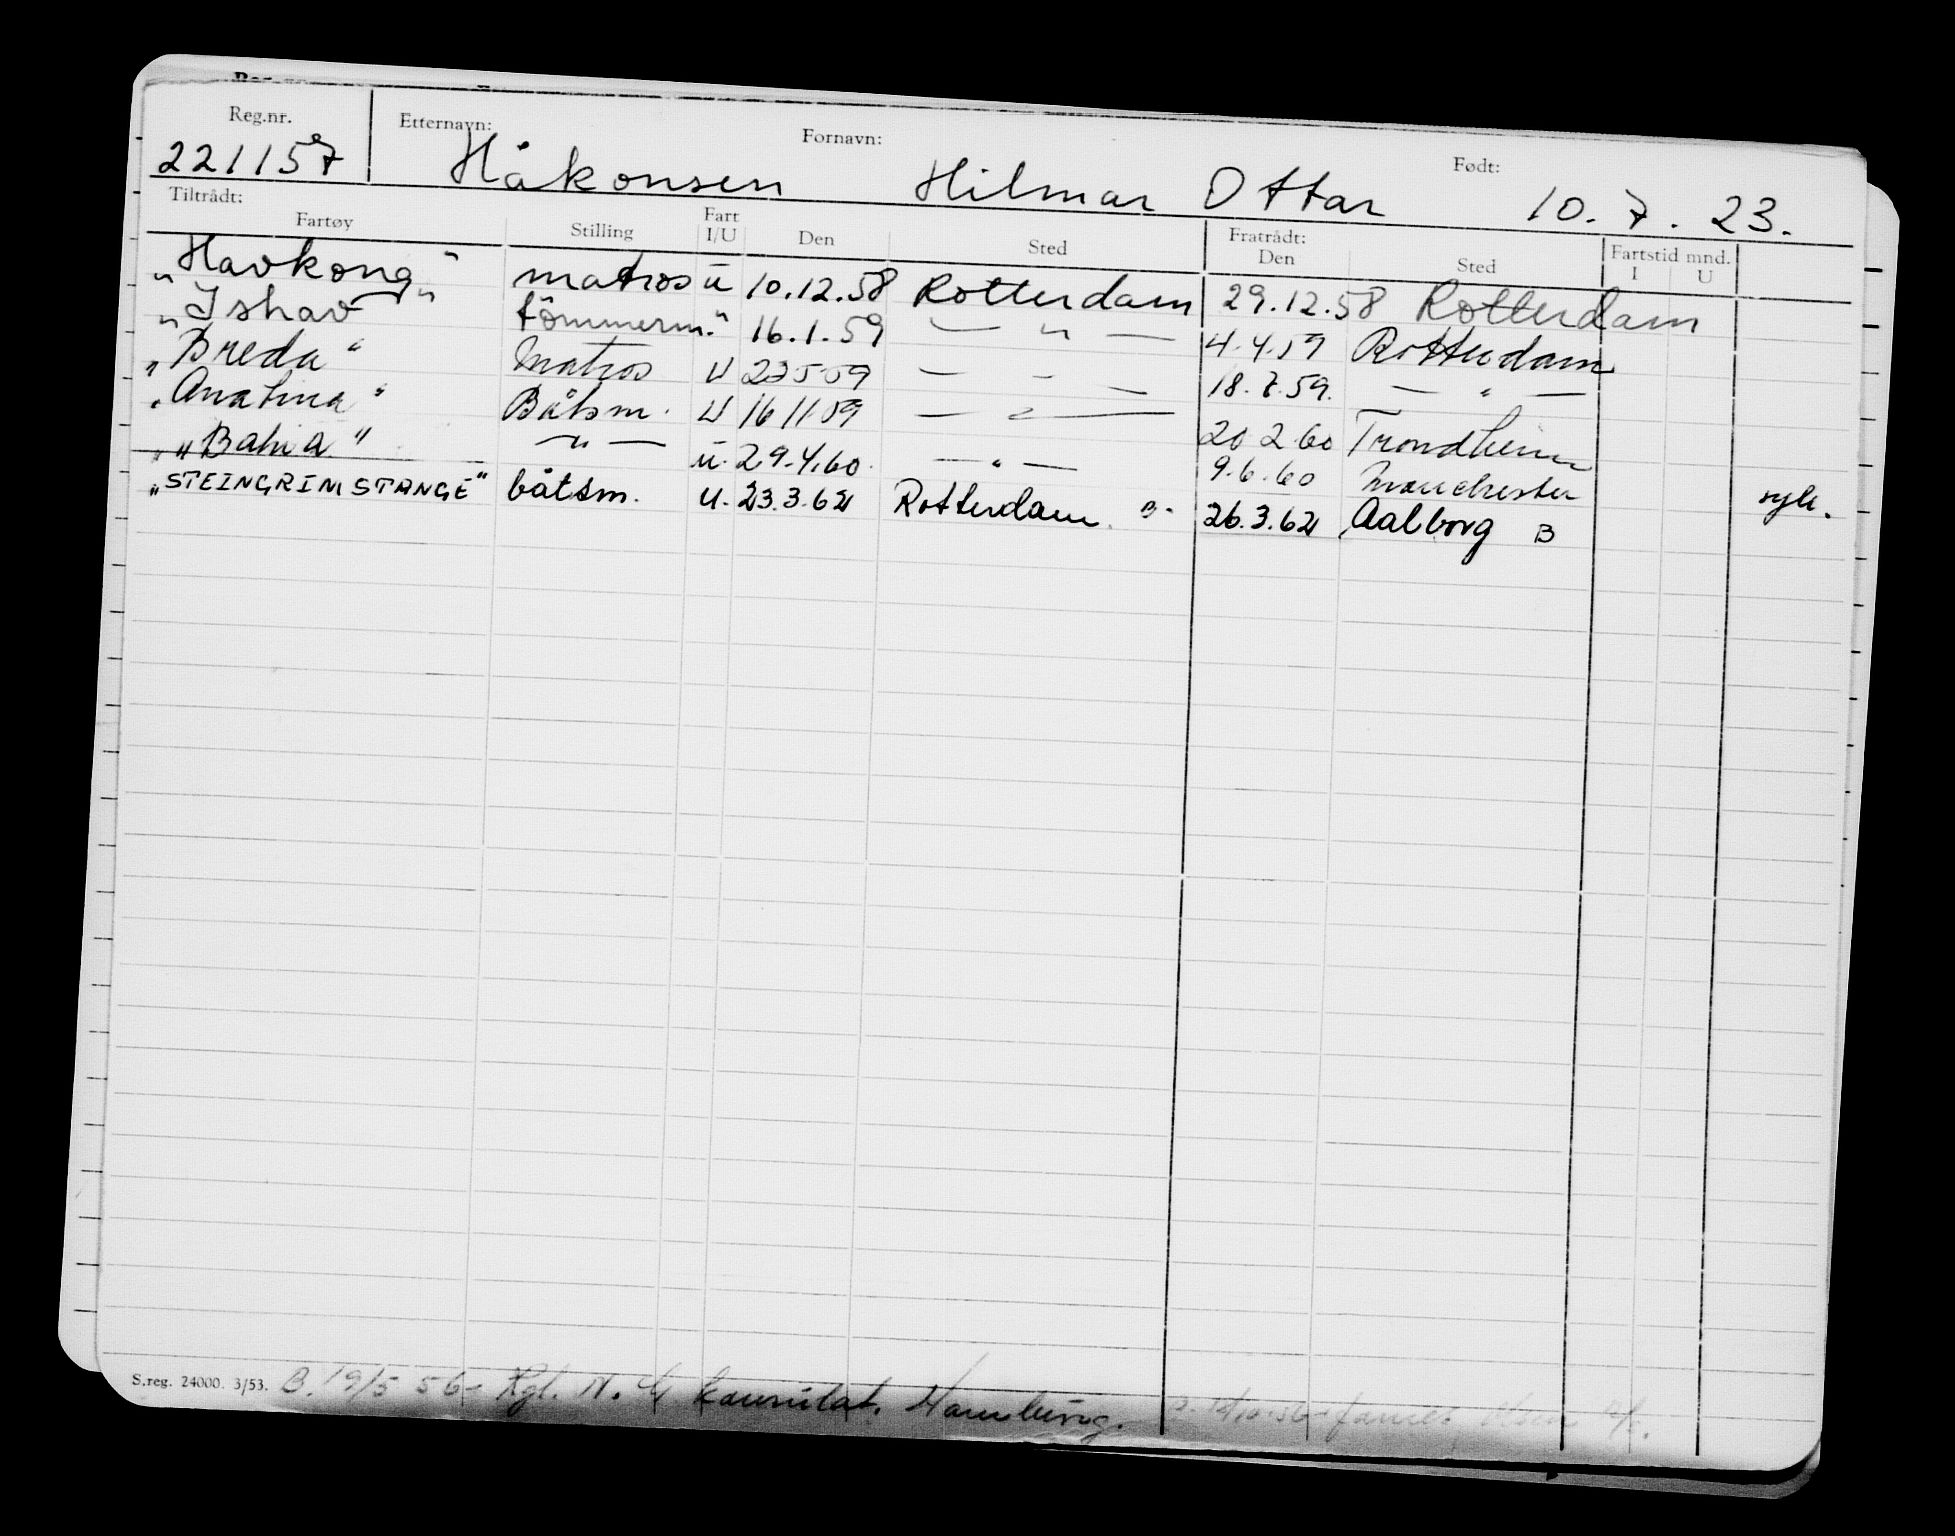 Reg.nr. Etternavn: Fornavn: Født:
221157 Håkonsen Hilmar Ottar 10.7.23.
Tiltrådt: Fratrådt: Fartstid mnd.
Fartøy Stilling Fart I/U Den Sted Den Sted I U
"Havkong" matros u 10.12.58 Rotterdam 29.12.58 Rotterdam
"Ishav" tömmerm. " 16.1.59 — " — 4.4.59 Rotterdam
"Breda" Matros U 23 5 59 — " — 18.7.59. — " —
"Anatina" Båtsm. U 16 11 59 — " — 20 2 60 Trondheim
"Bahia" — " — u. 29.4.60. — " — 9.6.60 Manchester
"STEINGRIM STANGE" båtsm. u. 23.3.62 Rotterdam B. 26.3.62 Aalborg B syk.
S.reg. 24000. 3/53. B. 19/5 56 - Kgl. N. konsulat. Hamburg.